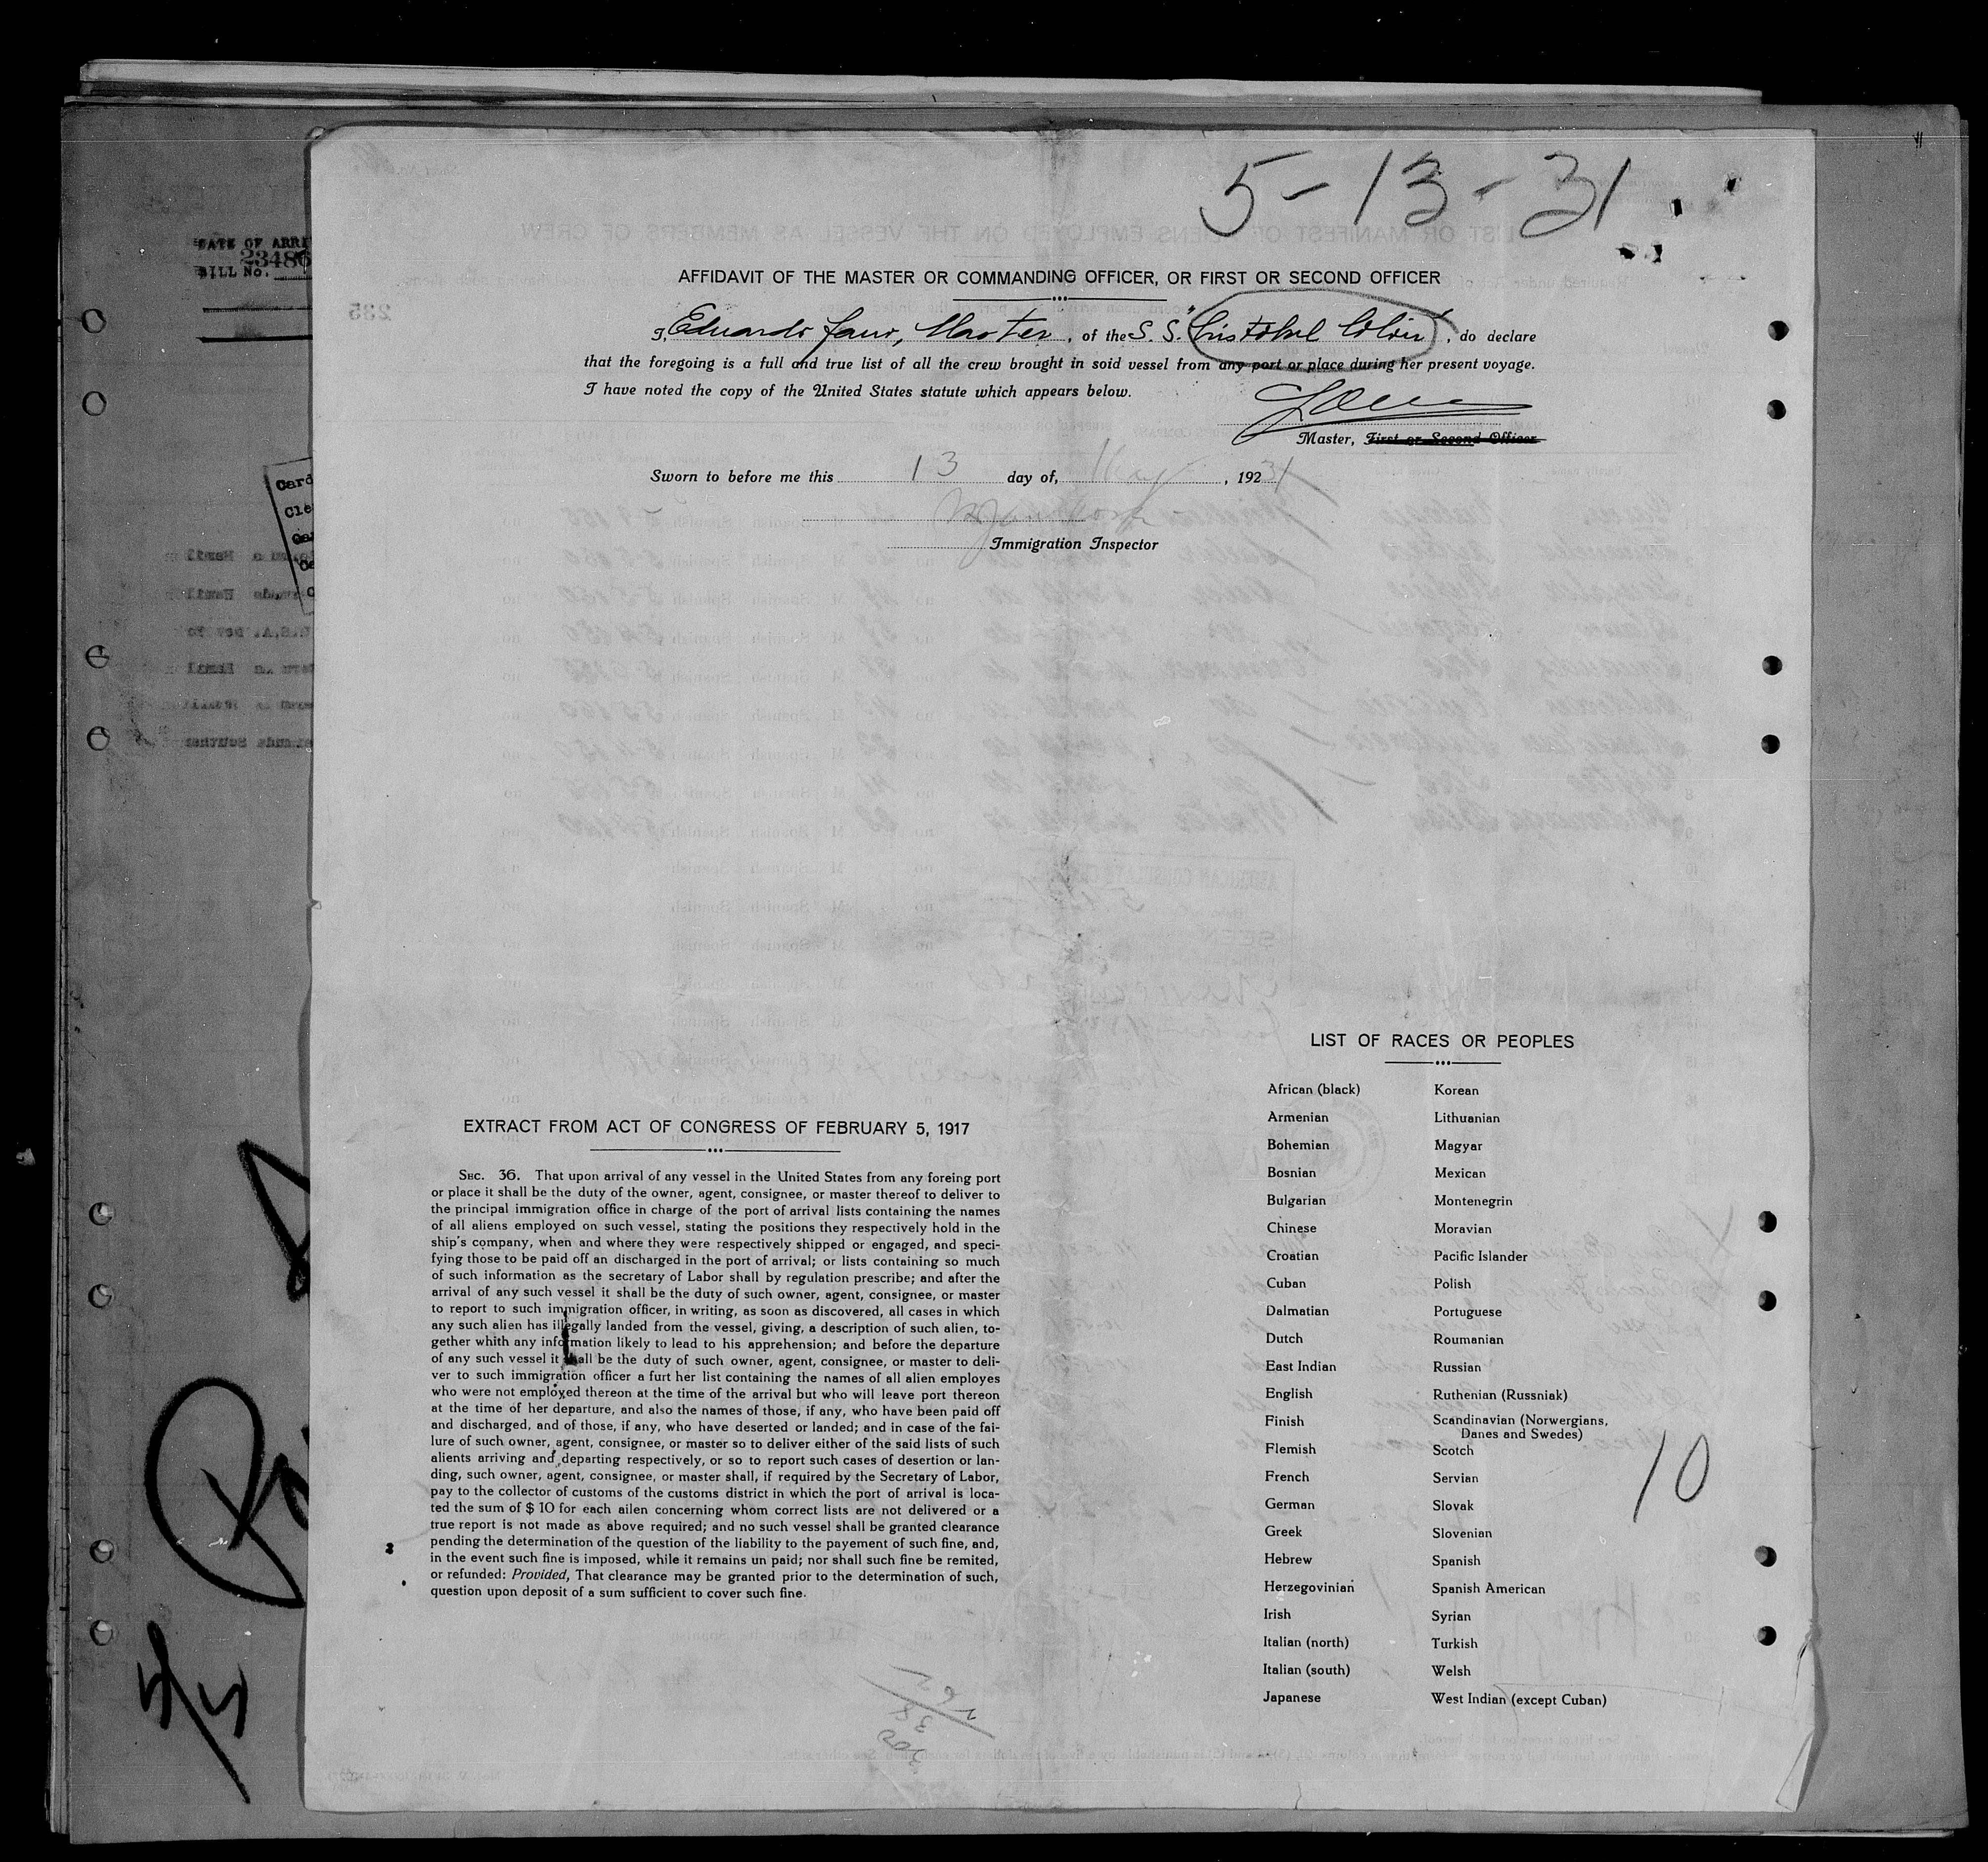 5-13-31
AFFIDAVIT OF THE MASTER OR COMMANDING OFFICER, OR FIRST OR SECOND OFFICER
I, Eduardo Fano, Master, of the S.S. "Cristobal Colon", do declare
that the foregoing is a full and true list of all the crew brought in soid vessel from any port or place during her present voyage.
I have noted the copy of the United States statute which appears below.
Master, First or Second Officer
Sworn to before me this 13 day of, May, 1931
Immigration Inspector
DATE OF ARRI
BILL No. 23486
Card
Cle
EXTRACT FROM ACT OF CONGRESS OF FEBRUARY 5, 1917
SEC. 36. That upon arrival of any vessel in the United States from any foreing port
or place it shall be the duty of the owner, agent, consignee, or master thereof to deliver to
the principal immigration office in charge of the port of arrival lists containing the names
of all aliens employed on such vessel, stating the positions they respectively hold in the
ship's company, when and where they were respectively shipped or engaged, and speci-
fying those to be paid off an discharged in the port of arrival; or lists containing so much
of such information as the secretary of Labor shall by regulation prescribe; and after the
arrival of any such vessel it shall be the duty of such owner, agent, consignee, or master
to report to such immigration officer, in writing, as soon as discovered, all cases in which
any such alien has illegally landed from the vessel, giving, a description of such alien, to-
gether whith any information likely to lead to his apprehension; and before the departure
of any such vessel it shall be the duty of such owner, agent, consignee, or master to deli-
ver to such immigration officer a furt her list containing the names of all alien employes
who were not employed thereon at the time of the arrival but who will leave port thereon
at the time of her departure, and also the names of those, if any, who have been paid off
and discharged, and of those, if any, who have deserted or landed; and in case of the fai-
lure of such owner, agent, consignee, or master so to deliver either of the said lists of such
alients arriving and departing respectively, or so to report such cases of desertion or lan-
ding, such owner, agent, consignee, or master shall, if required by the Secretary of Labor,
pay to the collector of customs of the customs district in which the port of arrival is loca-
ted the sum of $ 10 for each ailen concerning whom correct lists are not delivered or a
true report is not made as above required; and no such vessel shall be granted clearance
pending the determination of the question of the liability to the payement of such fine, and,
in the event such fine is imposed, while it remains un paid; nor shall such fine be remited,
or refunded: Provided, That clearance may be granted prior to the determination of such,
question upon deposit of a sum sufficient to cover such fine.
LIST OF RACES OR PEOPLES
African (black) Korean
Armenian Lithuanian
Bohemian Magyar
Bosnian Mexican
Bulgarian Montenegrin
Chinese Moravian
Croatian Pacific Islander
Cuban Polish
Dalmatian Portuguese
Dutch Roumanian
East Indian Russian
English Ruthenian (Russniak)
Finish Scandinavian (Norwergians,
Danes and Swedes)
Flemish Scotch
French Servian
German Slovak
Greek Slovenian
Hebrew Spanish
Herzegovinian Spanish American
Irish Syrian
Italian (north) Turkish
Italian (south) Welsh
Japanese West Indian (except Cuban)
10
5/5